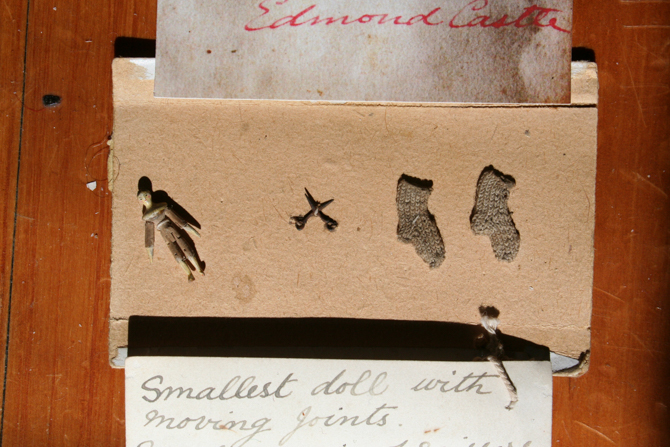 Edmond Castle
Smallest doll with
moving joints.